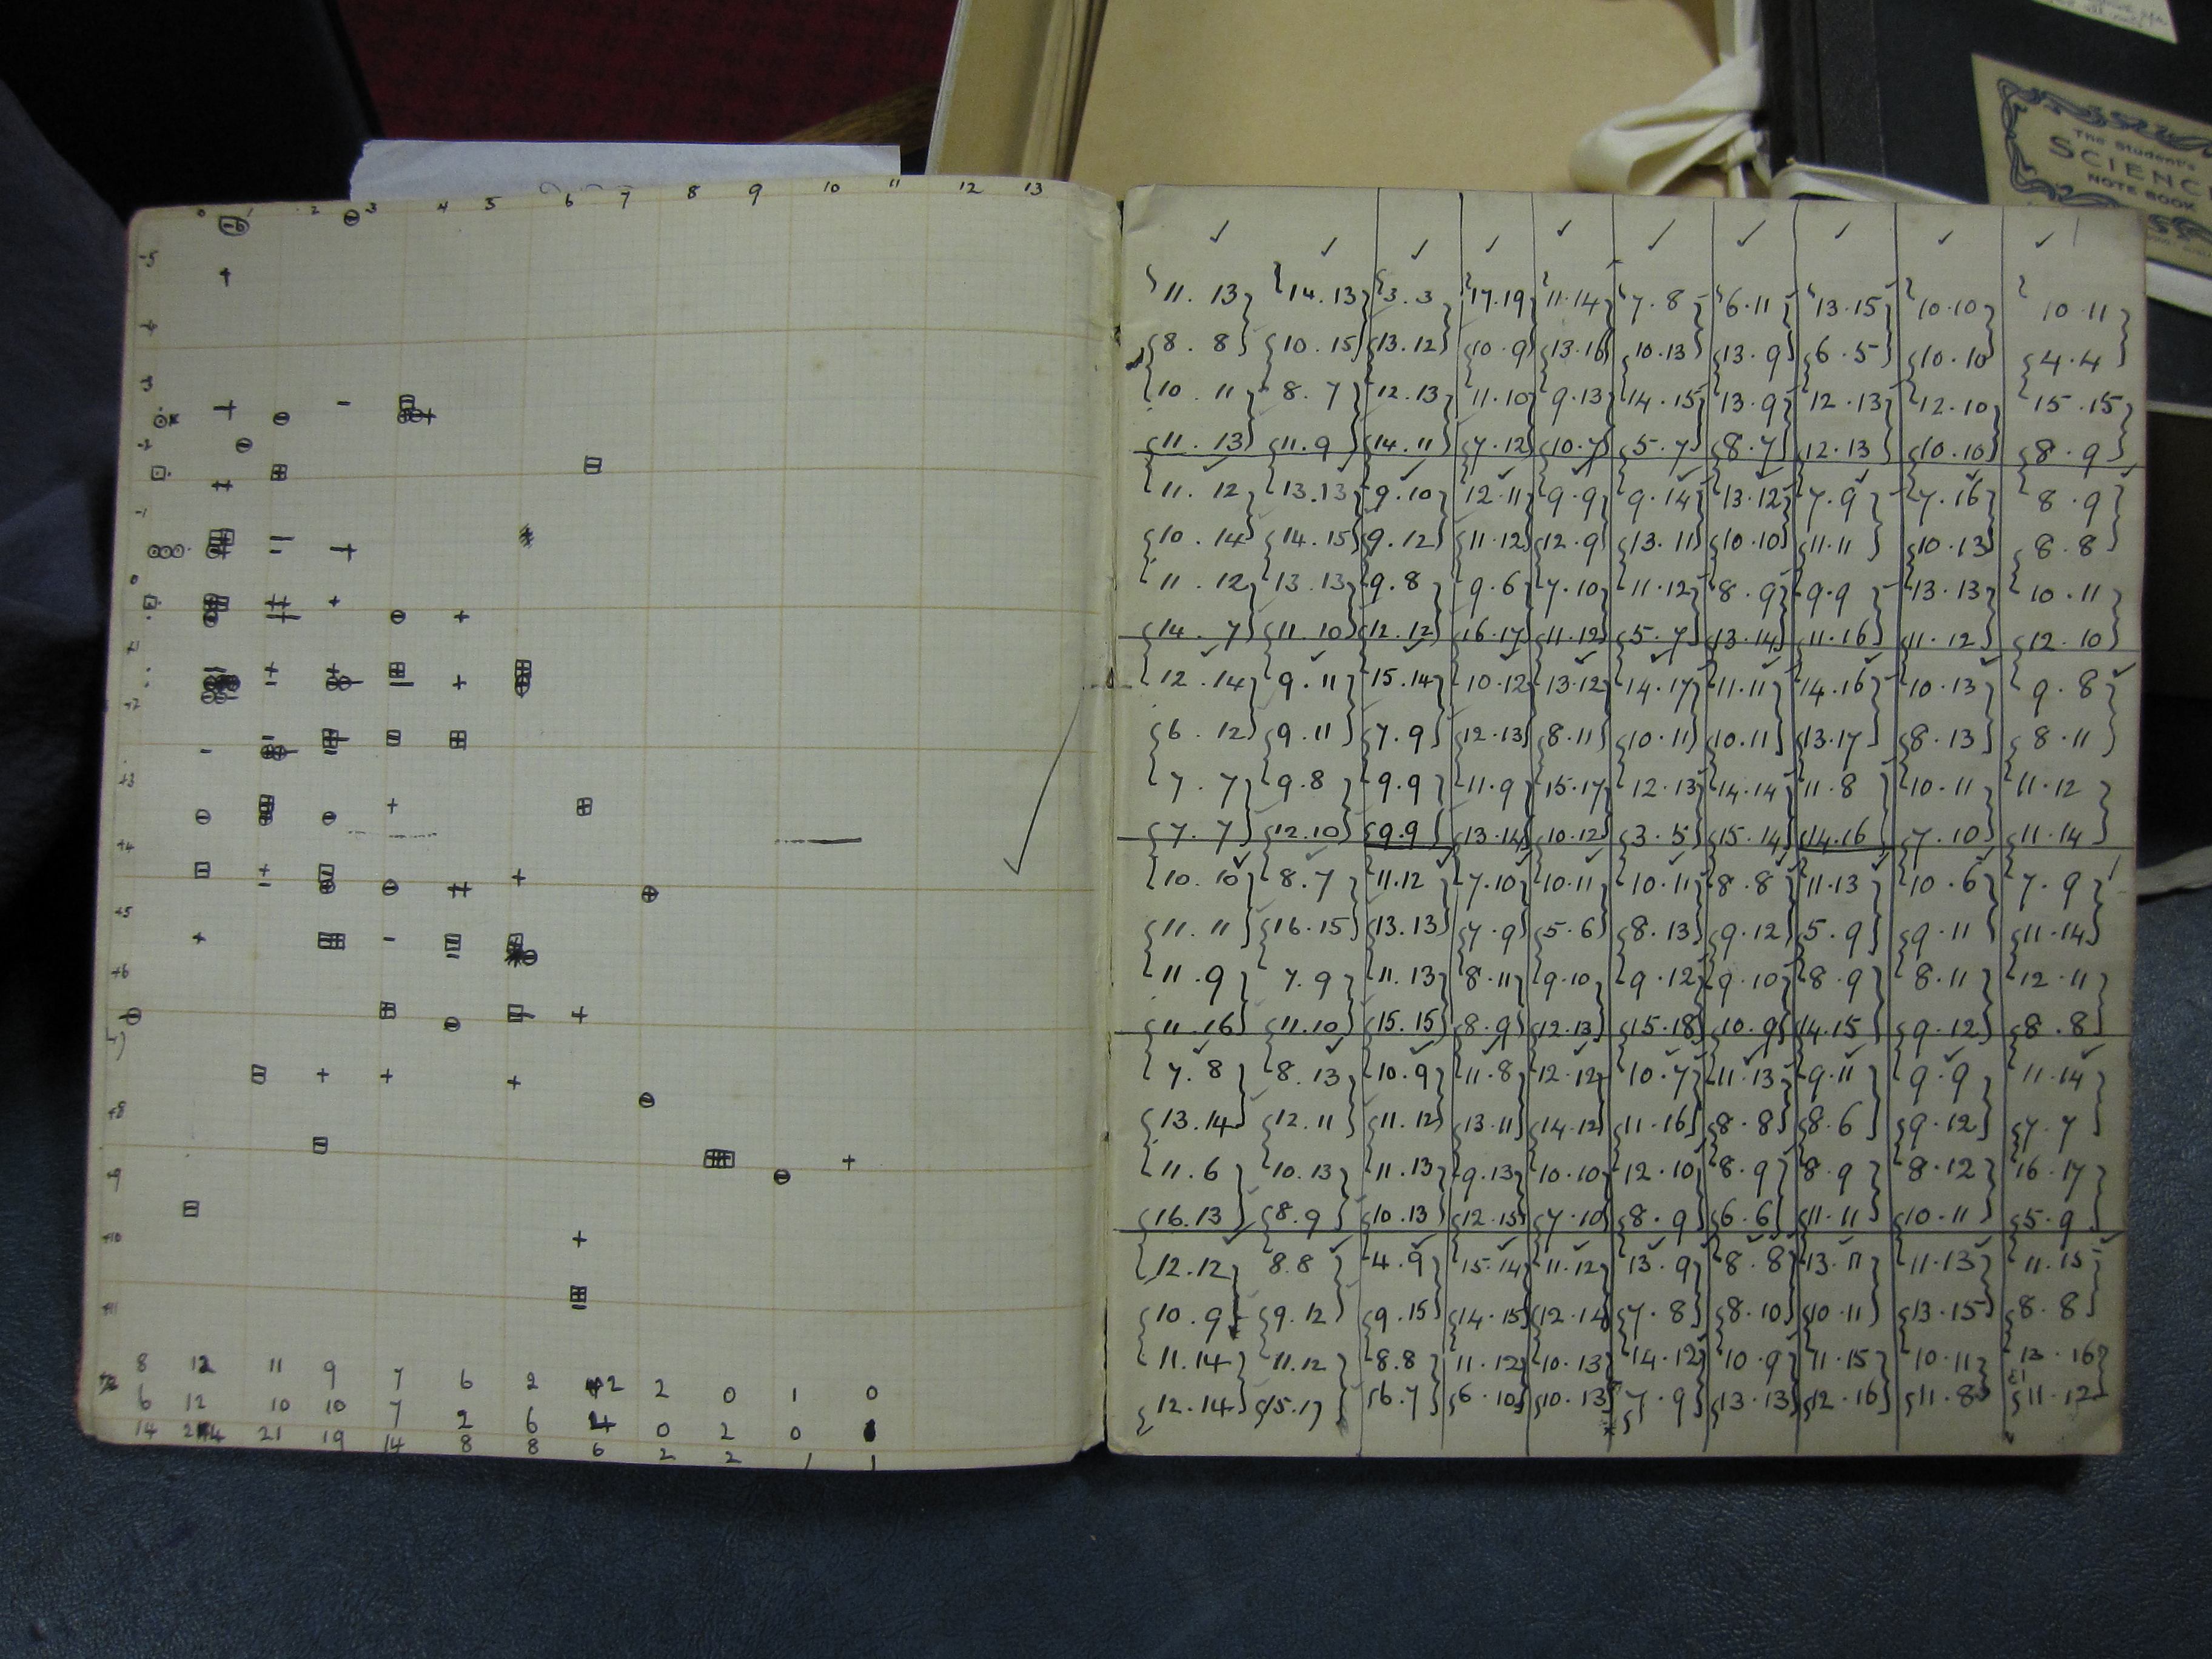 The Student's
SCIENC
NOTE BOOK
0 1 2 3 4 5 6 7 8 9 10 11 12 13
-6
-5
-4
-3
-2
-1
0
+1
+2
+3
+4
+5
+6
+7
+8
+9
+10
+11
8 12 11 9 7 6 2 2 2 0 1 0
6 12 10 10 7 2 6 4 0 2 0
14 24 21 19 14 8 8 6 2 2 1 1
11. 13 14. 13 3. 3 17.19 11.14 7. 8 6.11 13.15 10.10 10.11
8. 8 10. 15 13.12 10.9 13.16 10.13 13.9 6.5 10.10 4.4
10. 11 8. 7 12.13 11.10 9.13 14.15 13.9 12.13 12.10 15.15
11. 13 11.9 14.11 7.12 10.7 5.7 8.7 12.13 10.10 8.9
11. 12 13.13 9.10 12.11 9.9 9.14 13.12 7.9 7.16 8.9
10. 14 14.15 9.12 11.12 12.9 13.11 10.10 11.11 10.13 8.8
11. 12 13.13 9.8 9.6 7.10 11.12 8.9 9.9 13.13 10.11
14. 7 11.10 12.12 16.17 11.12 5.7 13.14 11.16 11.12 12.10
12.14 9.11 15.14 10.12 13.12 14.17 11.11 14.16 10.13 9.8
6. 12 9.11 7.9 12.13 8.11 10.11 10.11 13.17 8.13 8.11
7. 7 9.8 9.9 11.9 15.17 12.13 14.14 11.8 10.11 11.12
7. 7 12.10 9.9 13.14 10.12 3.5 15.14 14.16 7.10 11.14
10. 10 8.7 11.12 7.10 10.11 10.11 8.8 11.13 10.6 7.9
11. 11 16.15 13.13 7.9 5.6 8.13 9.12 5.9 9.11 11.14
11.9 7.9 11.13 8.11 9.10 9.12 9.10 8.9 8.11 12.11
11.16 11.10 15.15 8.9 12.13 15.18 10.9 14.15 9.12 8.8
7.8 8.13 10.9 11.8 12.12 10.7 11.13 9.11 9.9 11.14
13.14 12.11 11.12 13.11 14.12 11.16 8.8 8.6 9.12 7.7
11.6 10.13 11.13 9.13 10.10 12.10 8.9 8.9 8.12 16.17
16.13 8.9 10.13 12.15 7.10 8.9 6.6 11.11 10.11 5.9
12.12 8.8 4.9 15.14 11.12 13.9 8.8 13.11 11.13 11.15
10.9 9.12 9.15 14.15 12.14 7.8 8.10 10.11 13.15 8.8
11.14 11.12 8.8 11.12 10.13 14.12 10.9 11.15 10.11 13.16
12.14 15.17 6.7 6.10 10.13 7.9 13.13 12.16 11.8 11.12